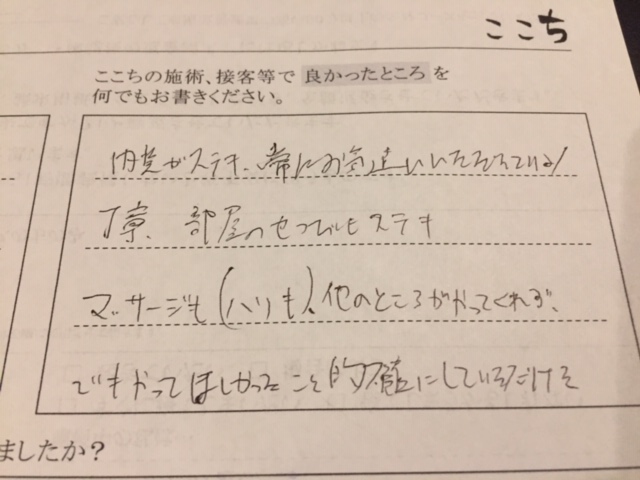 ここち
ここちの施術、接客等で 良かったところ を
何でもお書きください。
内装がステキ、常にお気遣いいただいている
丁寧、部屋のせつびもステキ
マッサージも(ハリも)、他のところがやってくれず、
でもやってほしかったこと的確にしているだける
ましたか?